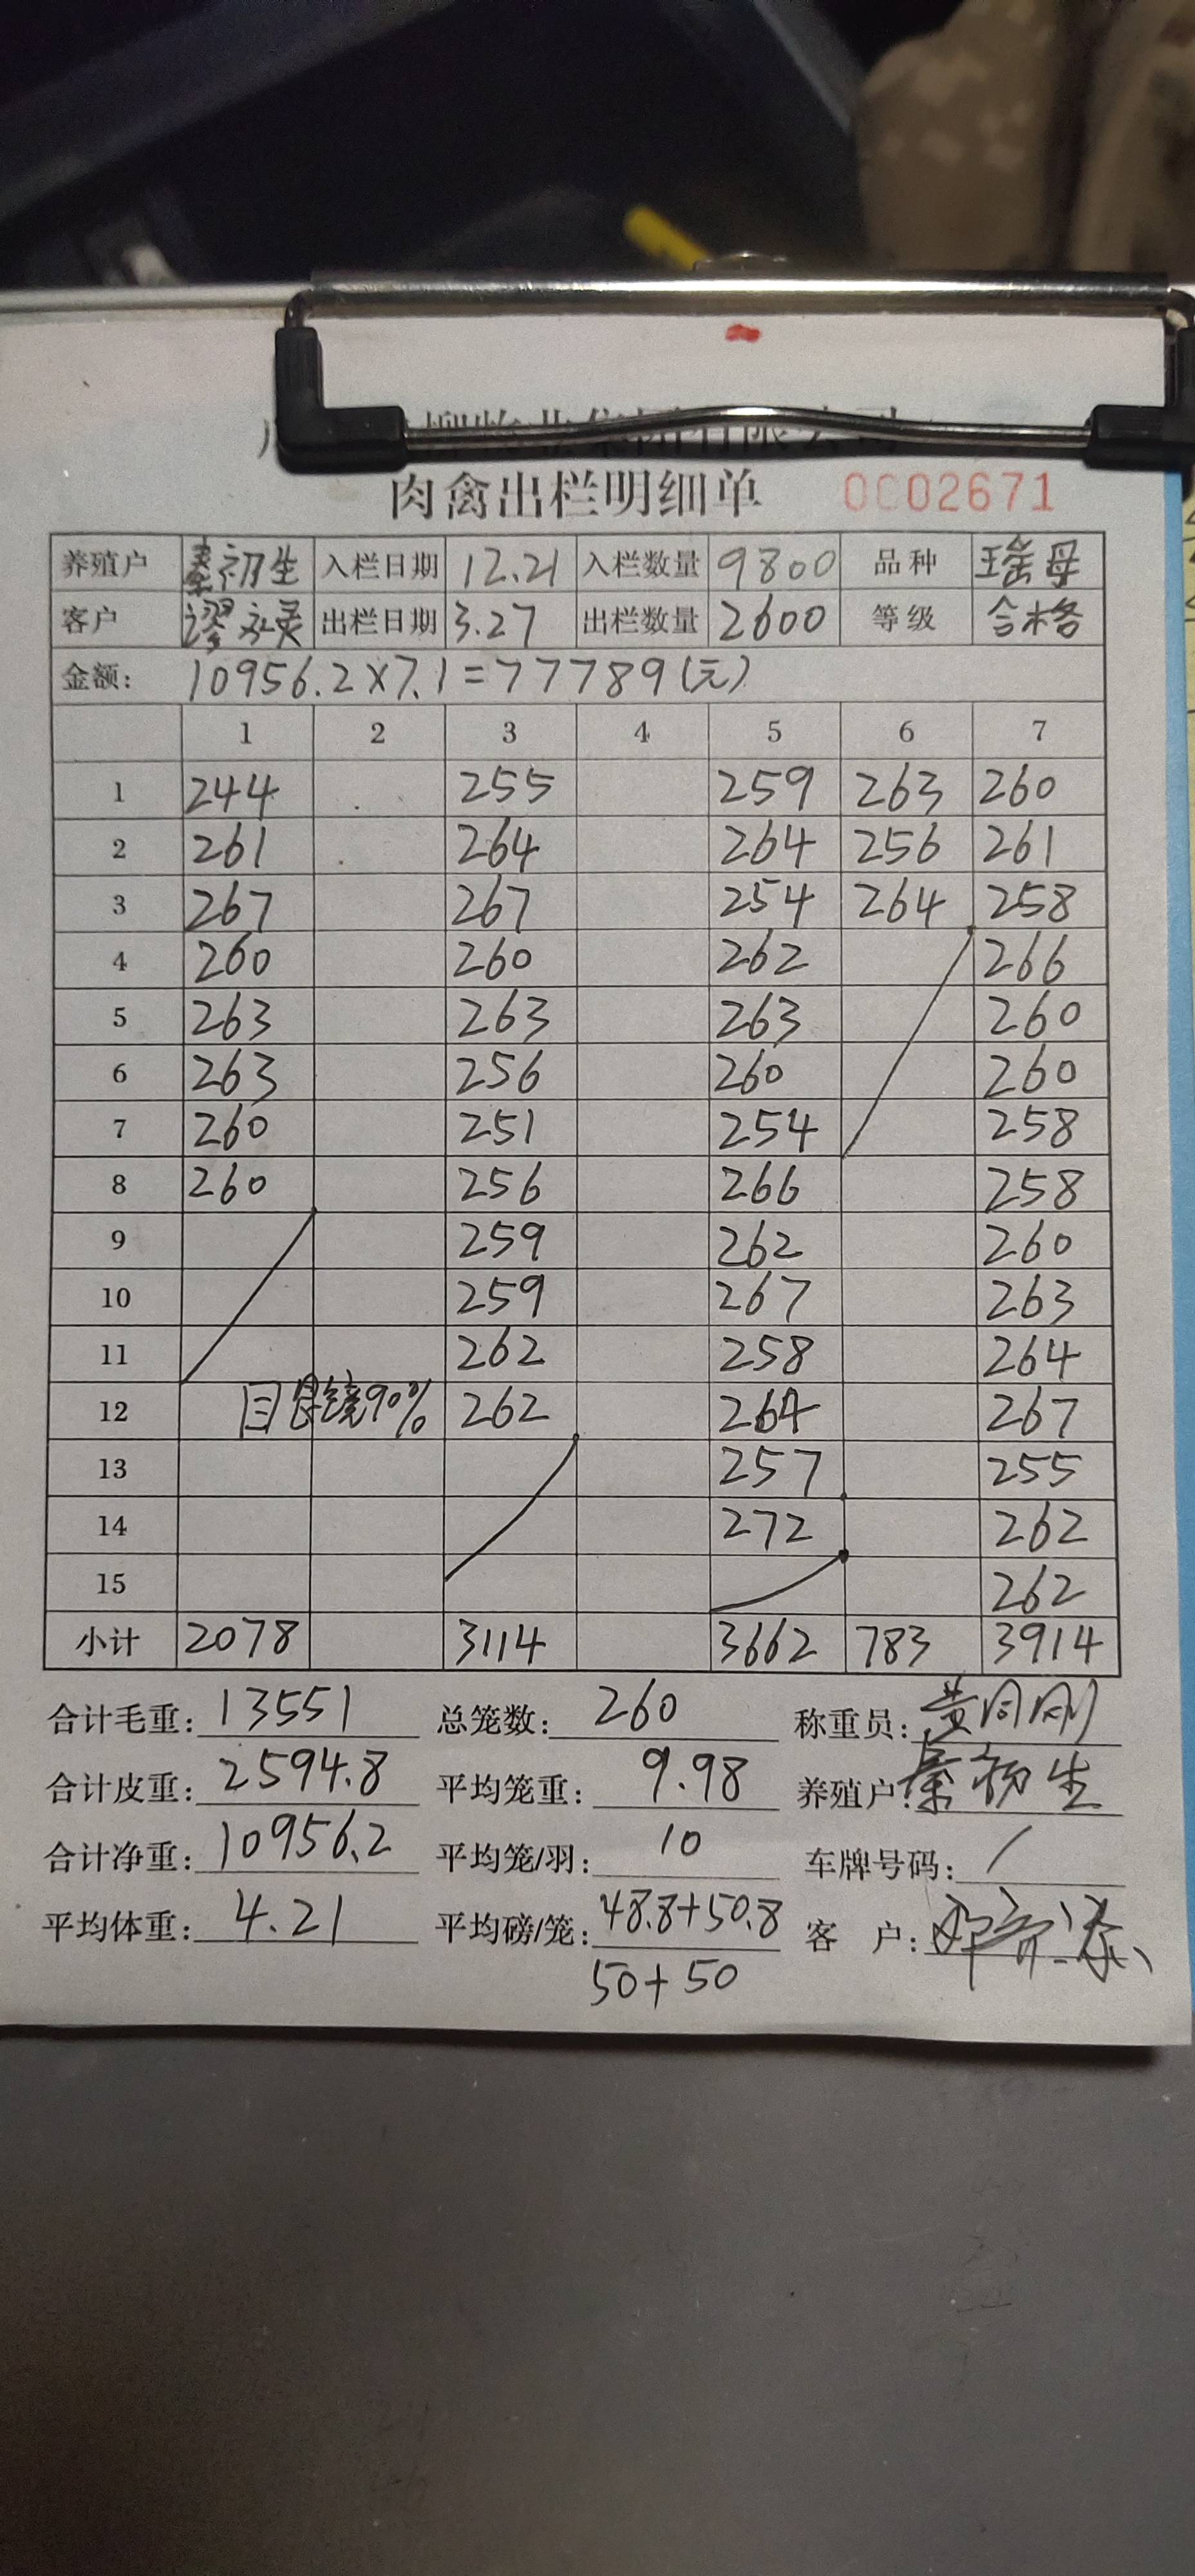 肉禽出栏明细单 0002671
养殖户 秦初生 入栏日期 12.21 入栏数量 9800 品种 瑶母
客户 谬永灵 出栏日期 3.27 出栏数量 2600 等级 合格
金额: 10956.2×7.1=77789(元)
1 2 3 4 5 6 7
1 244 255 259 263 260
2 261 264 264 256 261
3 267 267 254 264 258
4 260 260 262 266
5 263 263 263 260
6 263 256 260 260
7 260 251 254 258
8 260 256 266 258
9 259 262 260
10 259 267 263
11 262 258 264
12 目镜90% 262 264 267
13 257 255
14 272 262
15 262
小计 2078 3114 3662 783 3914
合计毛重: 13551 总笼数: 260 称重员: 黄同刚
合计皮重: 2594.8 平均笼重: 9.98 养殖户: 秦初生
合计净重: 10956.2 平均笼/羽: 10 车牌号码: /
平均体重: 4.21 平均磅/笼: 48.8+50.8 客 户:
50+50